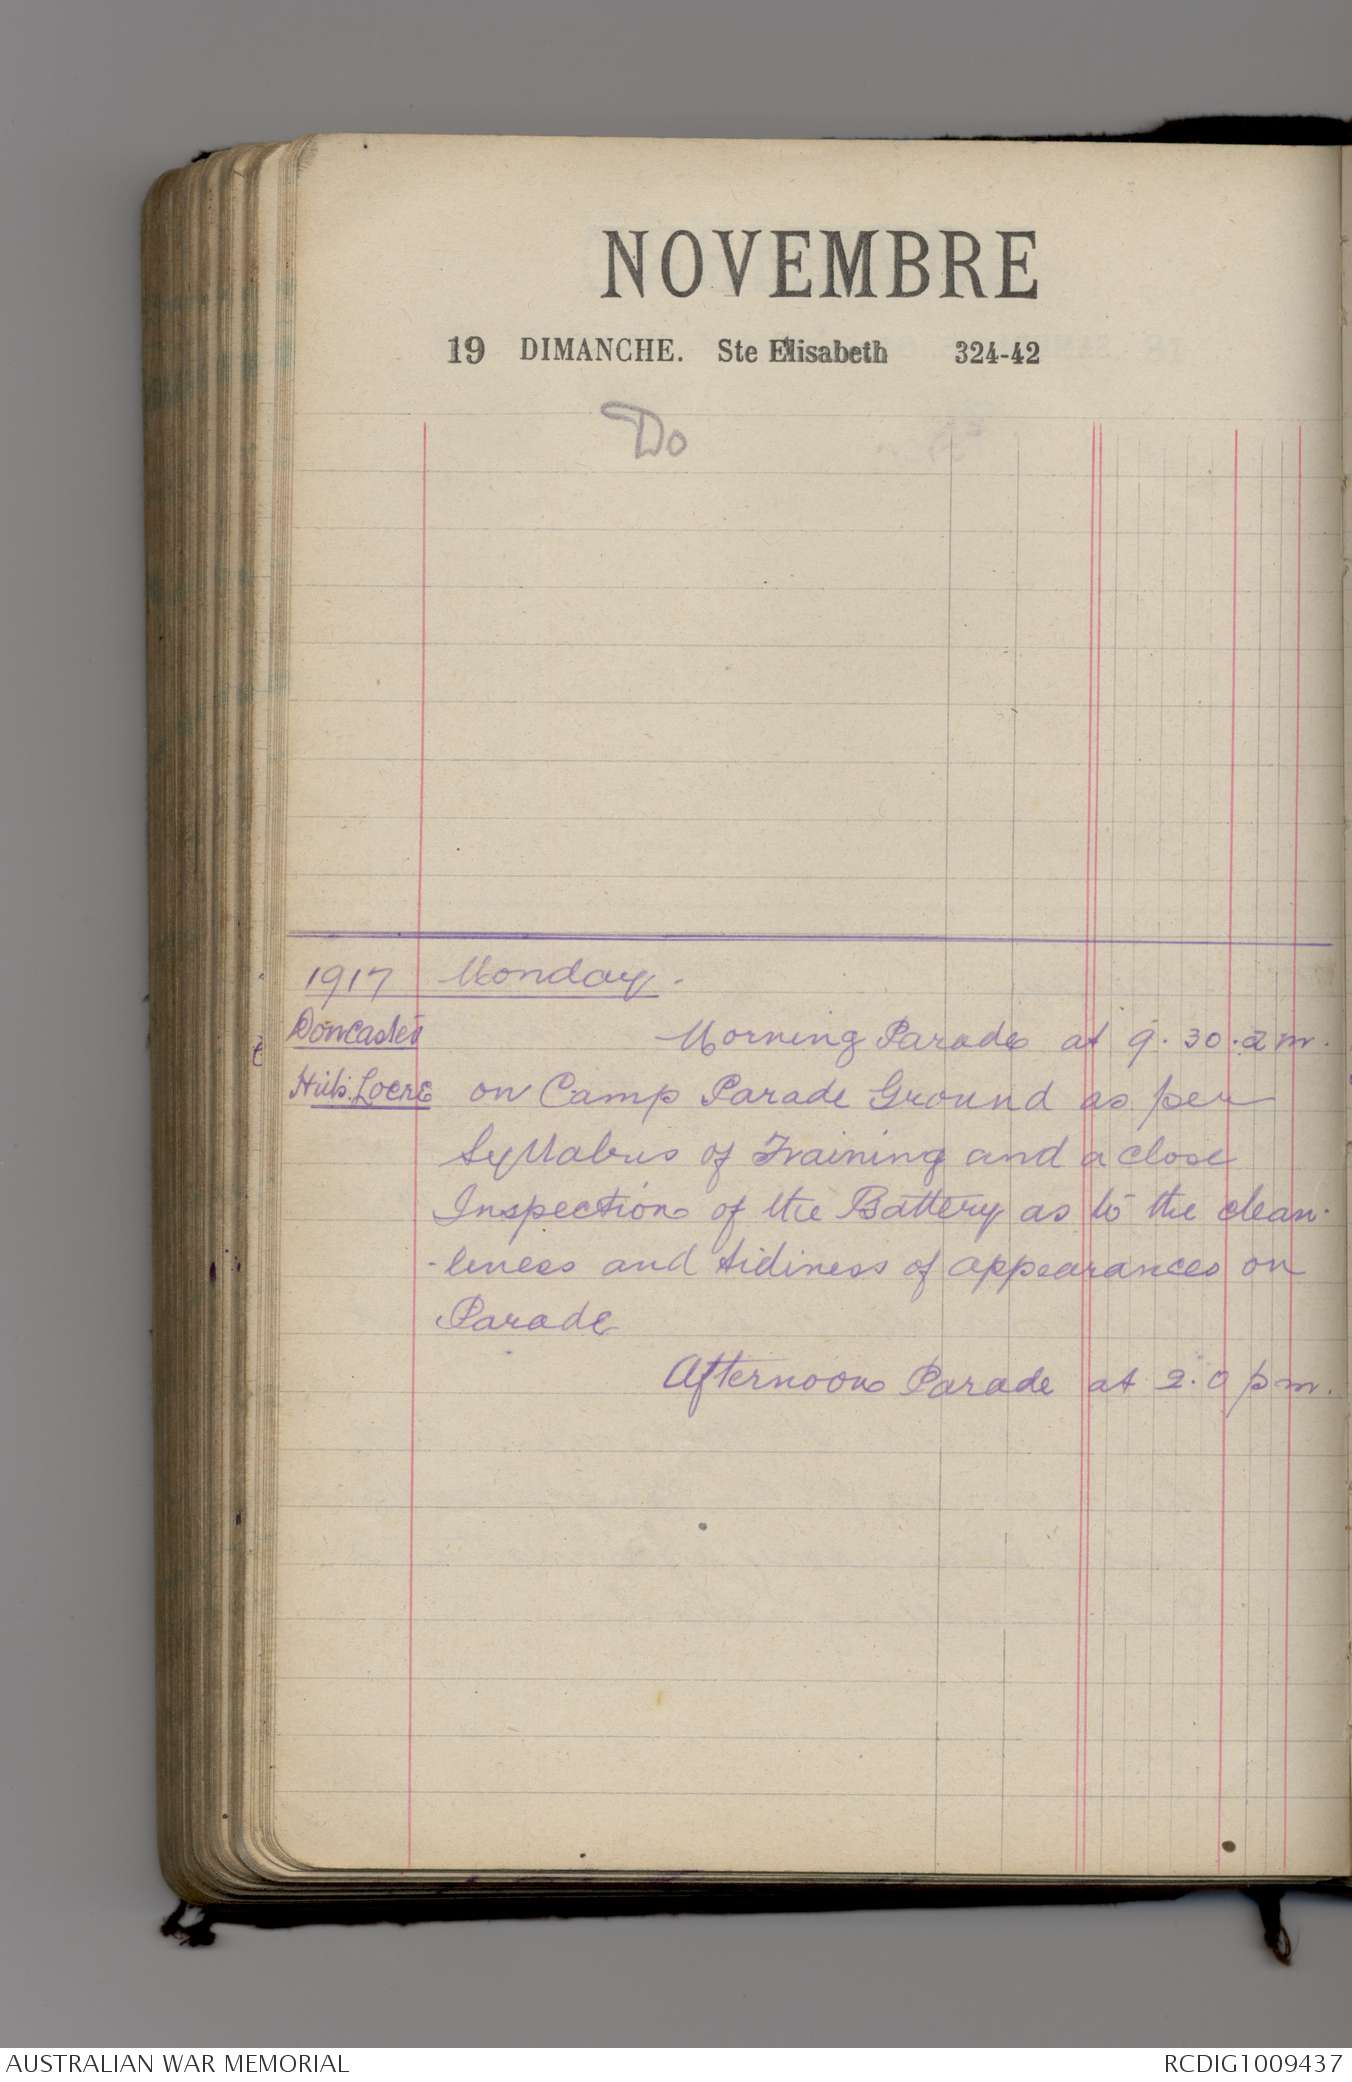 NOVEMBRE
19 DIMANCHE. Ste Elisabeth 324-42
Do
1917 Monday.
Doncaster Morning Parade at 9.30.am.
Huts. Locre on Camp Parade Ground as per
Syllabus of Training and a close
Inspection of the Battery as to the clean-
-liness and tidiness of appearances on
Parade
Afternoon Parade at 2.0 pm.
AUSTRALIAN WAR MEMORIAL RCDIG1009437